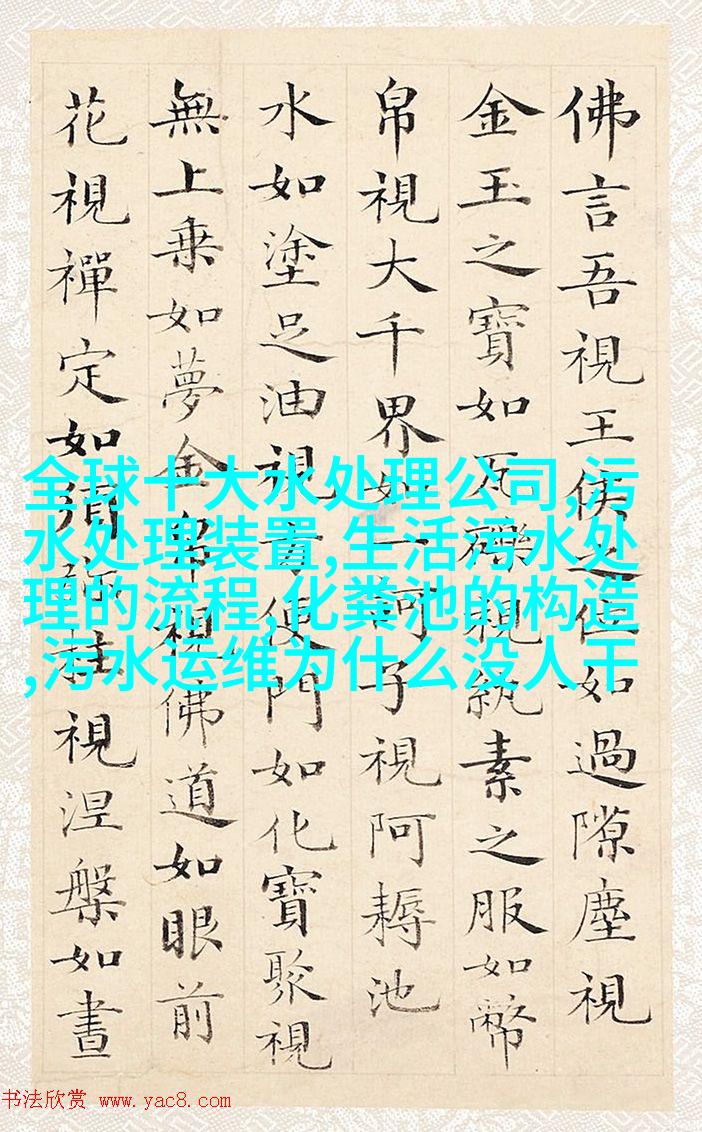 佛言吾視王侯之位如過隙塵視
金玉之寶如瓦礫視紈素之服如幣
帛視大千界如一訶子視阿耨池
水如塗足油視方便門如化寶聚視
無上乗如夢金帛視佛道如眼前
花視禪定如須彌柱視涅槃如晝
全球十大水处理公司,污
水处理装置,生活污水处
理的流程,化粪池的构造
,污水运维为什么没人干
书法欣赏 www.yac8.com